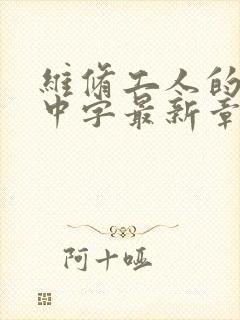 維脩工人的
中字最新章
阿十哑